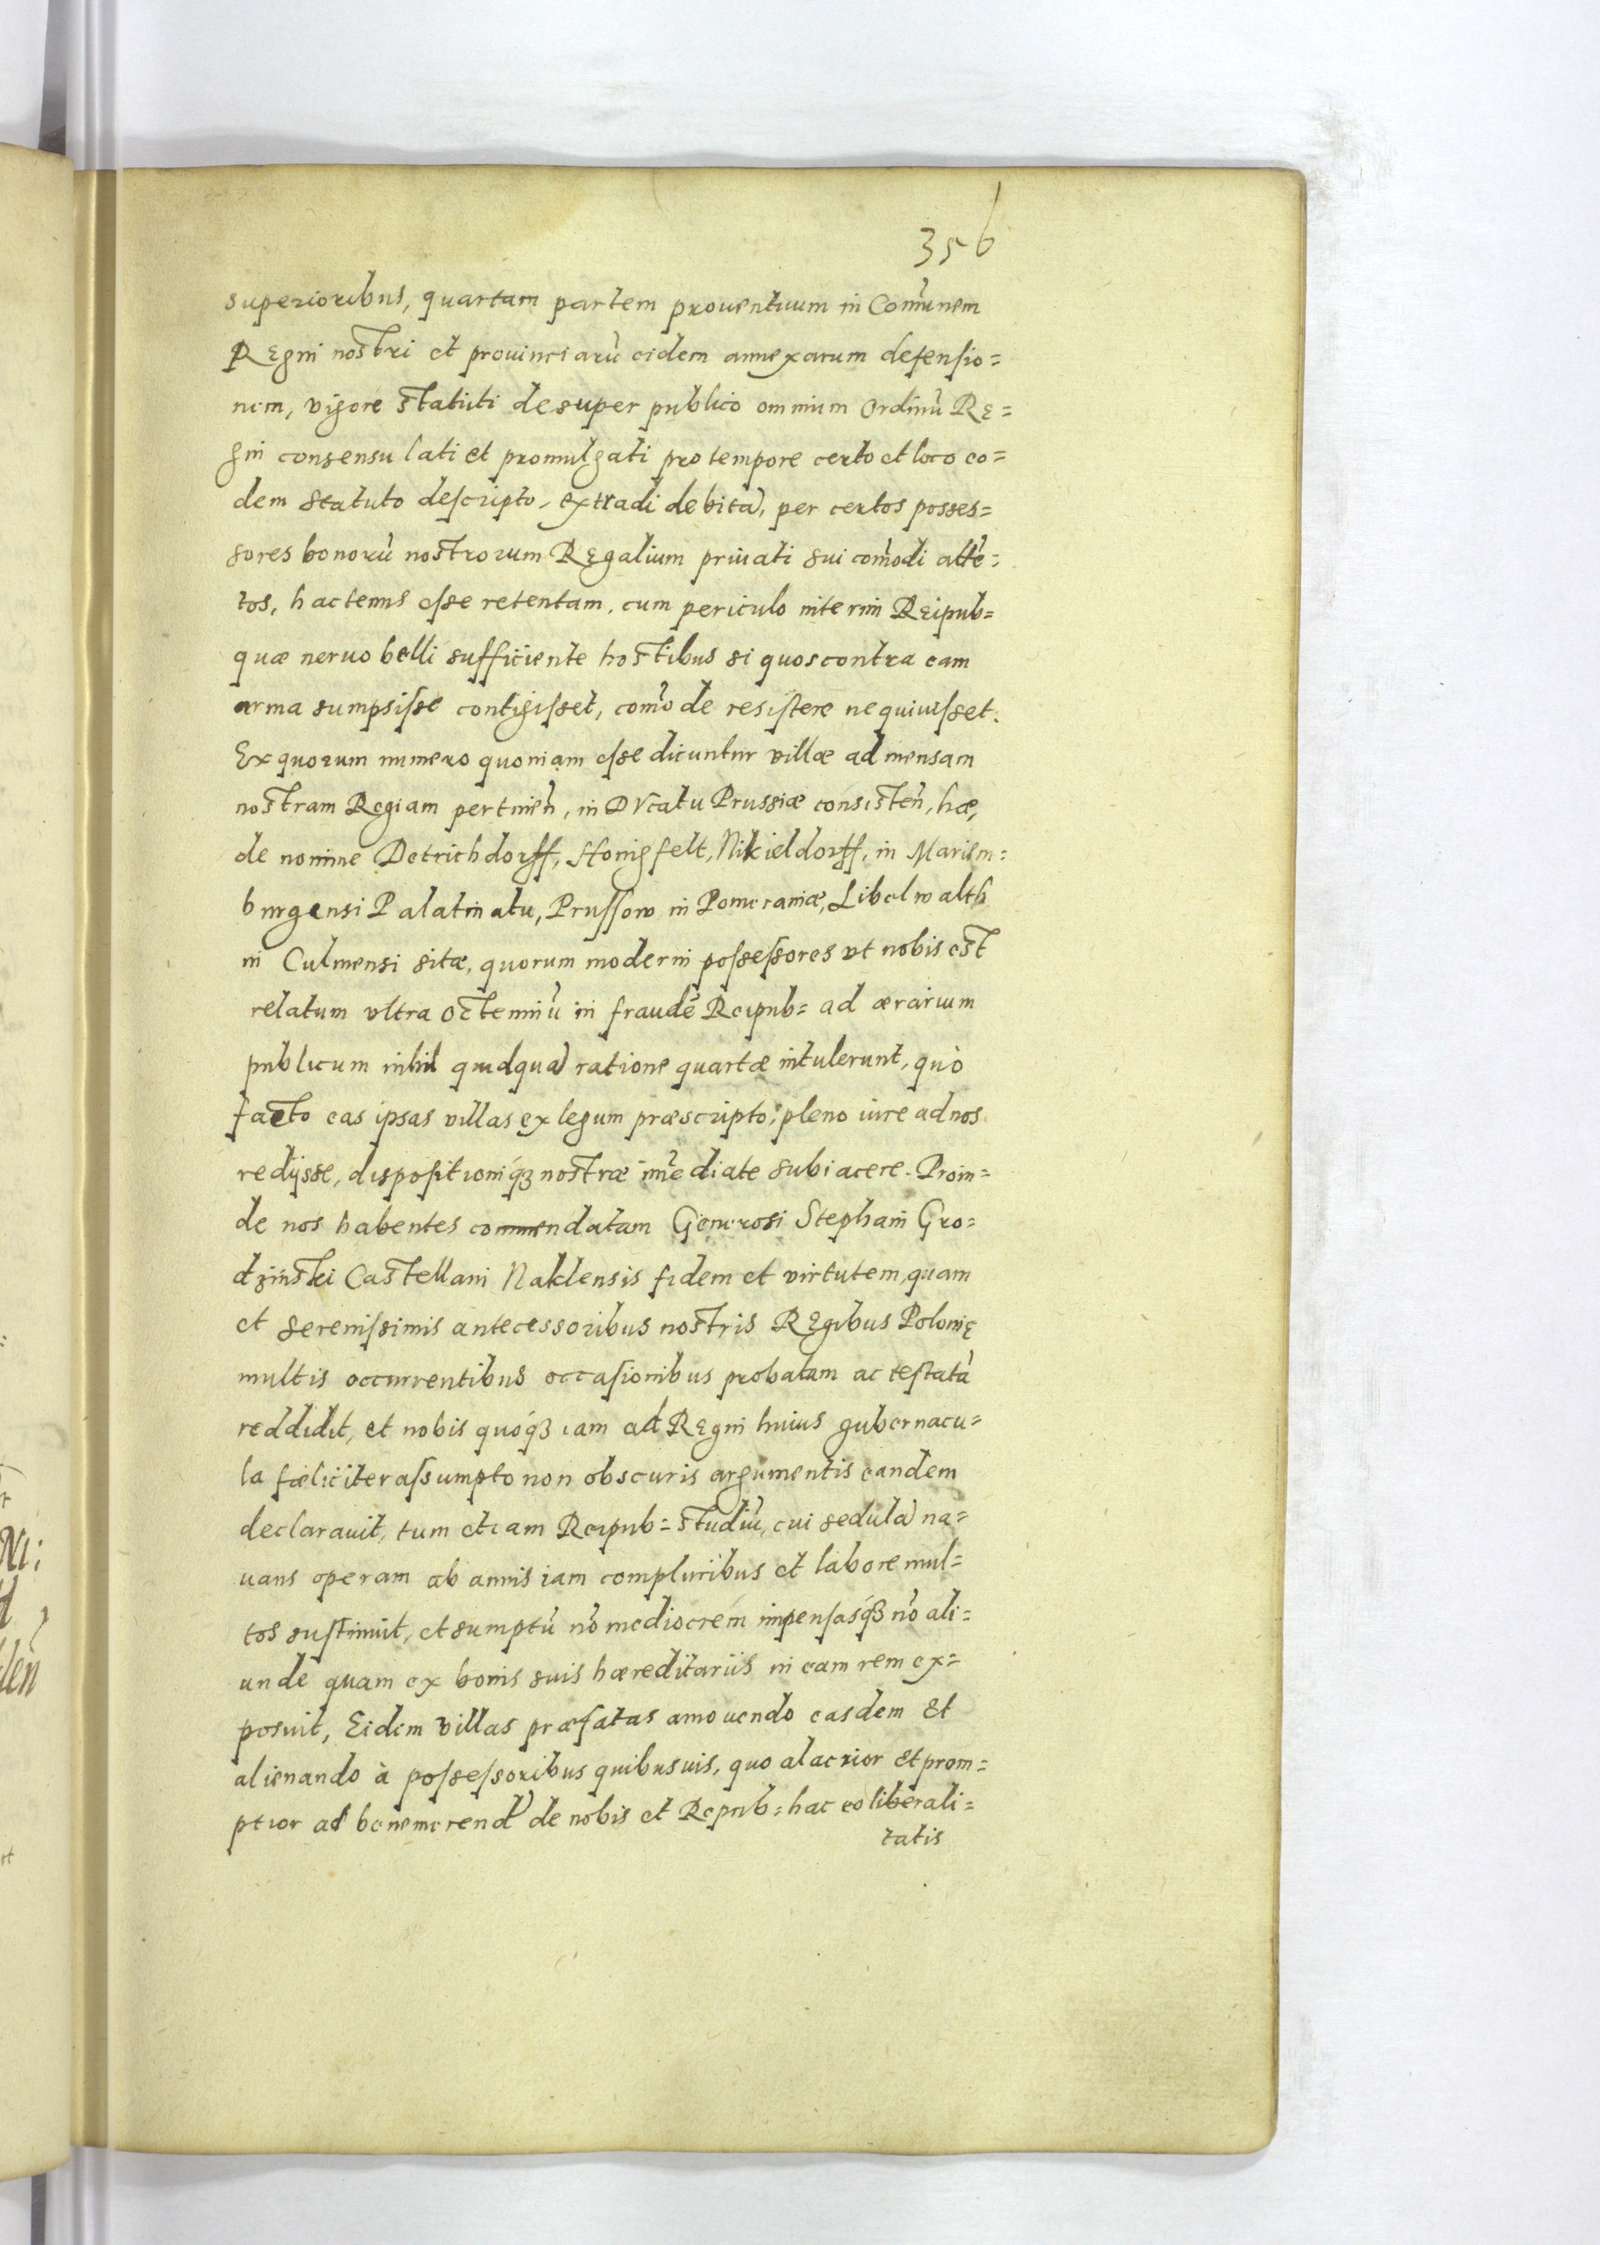 356
superioribus, quartam partem prouentuum in Com̃unem
Regni nostri et prouinciarũ eidem annexarum defensio=
nem, vigore statuti desuper publico omnium Ordinũ Re=
gni consensu lati et promulgati pro tempore certo et loco eo=
dem statuto descripto, extradi debitã, per certos posses=
sores bonorũ nostrorum Regalium priuati sui com̃odi attẽ=
tos, hactenus esse retentam, cum periculo interim Reipub=
quæ neruo belli sufficiente hostibus si quos contra eam
arma sumpsisse contigisset, com̃ode resistere nequiuisset.
Ex quorum numero quoniam esse dicuntur villæ ad mensam
nostram Regiam pertineñ, in Ducatu Prussiæ consisteñ, hæ,
de nomine Detrichdorff, Honigfelt, Nikieldorff, in Mariem=
burgensi Palatinatu, Prussow in Pomeraniæ, Libelwalth
in Culmensi sitæ, quorum moderni possessores vt nobis est
relatum vltra octenniũ in fraudẽ Reipub= ad ærarium
publicum nihil quidquã ratione quartæ intulerunt, quò
facto eas ipsas villas ex legum præscripto, pleno iure ad nos
redijsse, dispositioniq́ꝫ nostræ im̃ediate subiacere. Proin=
de nos habentes commendatam Generosi Stephani Gro=
dzinski Castellani Naklensis fidem et virtutem, quam
et serenissimis antecessoribus nostris Regibus Polonię
multis occurrentibus occasionibus probatam ac testatã
reddidit, et nobis quoq́ꝫ iam ad Regni huius gubernacu=
la fæliciter assumpto non obscuris argumentis eandem
declarauit, tum etiam Reipub= studiũ, cui sedulã na=
uans operam ab annis iam compluribus et labore mul=
tos sustinuit, et sumptũ nõ mediocrem impensasq́ꝫ nõ ali=
unde quam ex bonis suis hæreditariis in eam rem ex=
posuit, Eidem villas præfatas amouendo easdem Et
alienando à possessoribus quibusuis, quo alacrior Et prom=
ptior ad benemerend̃ de nobis et Repub= hac eo liberali=
tatis